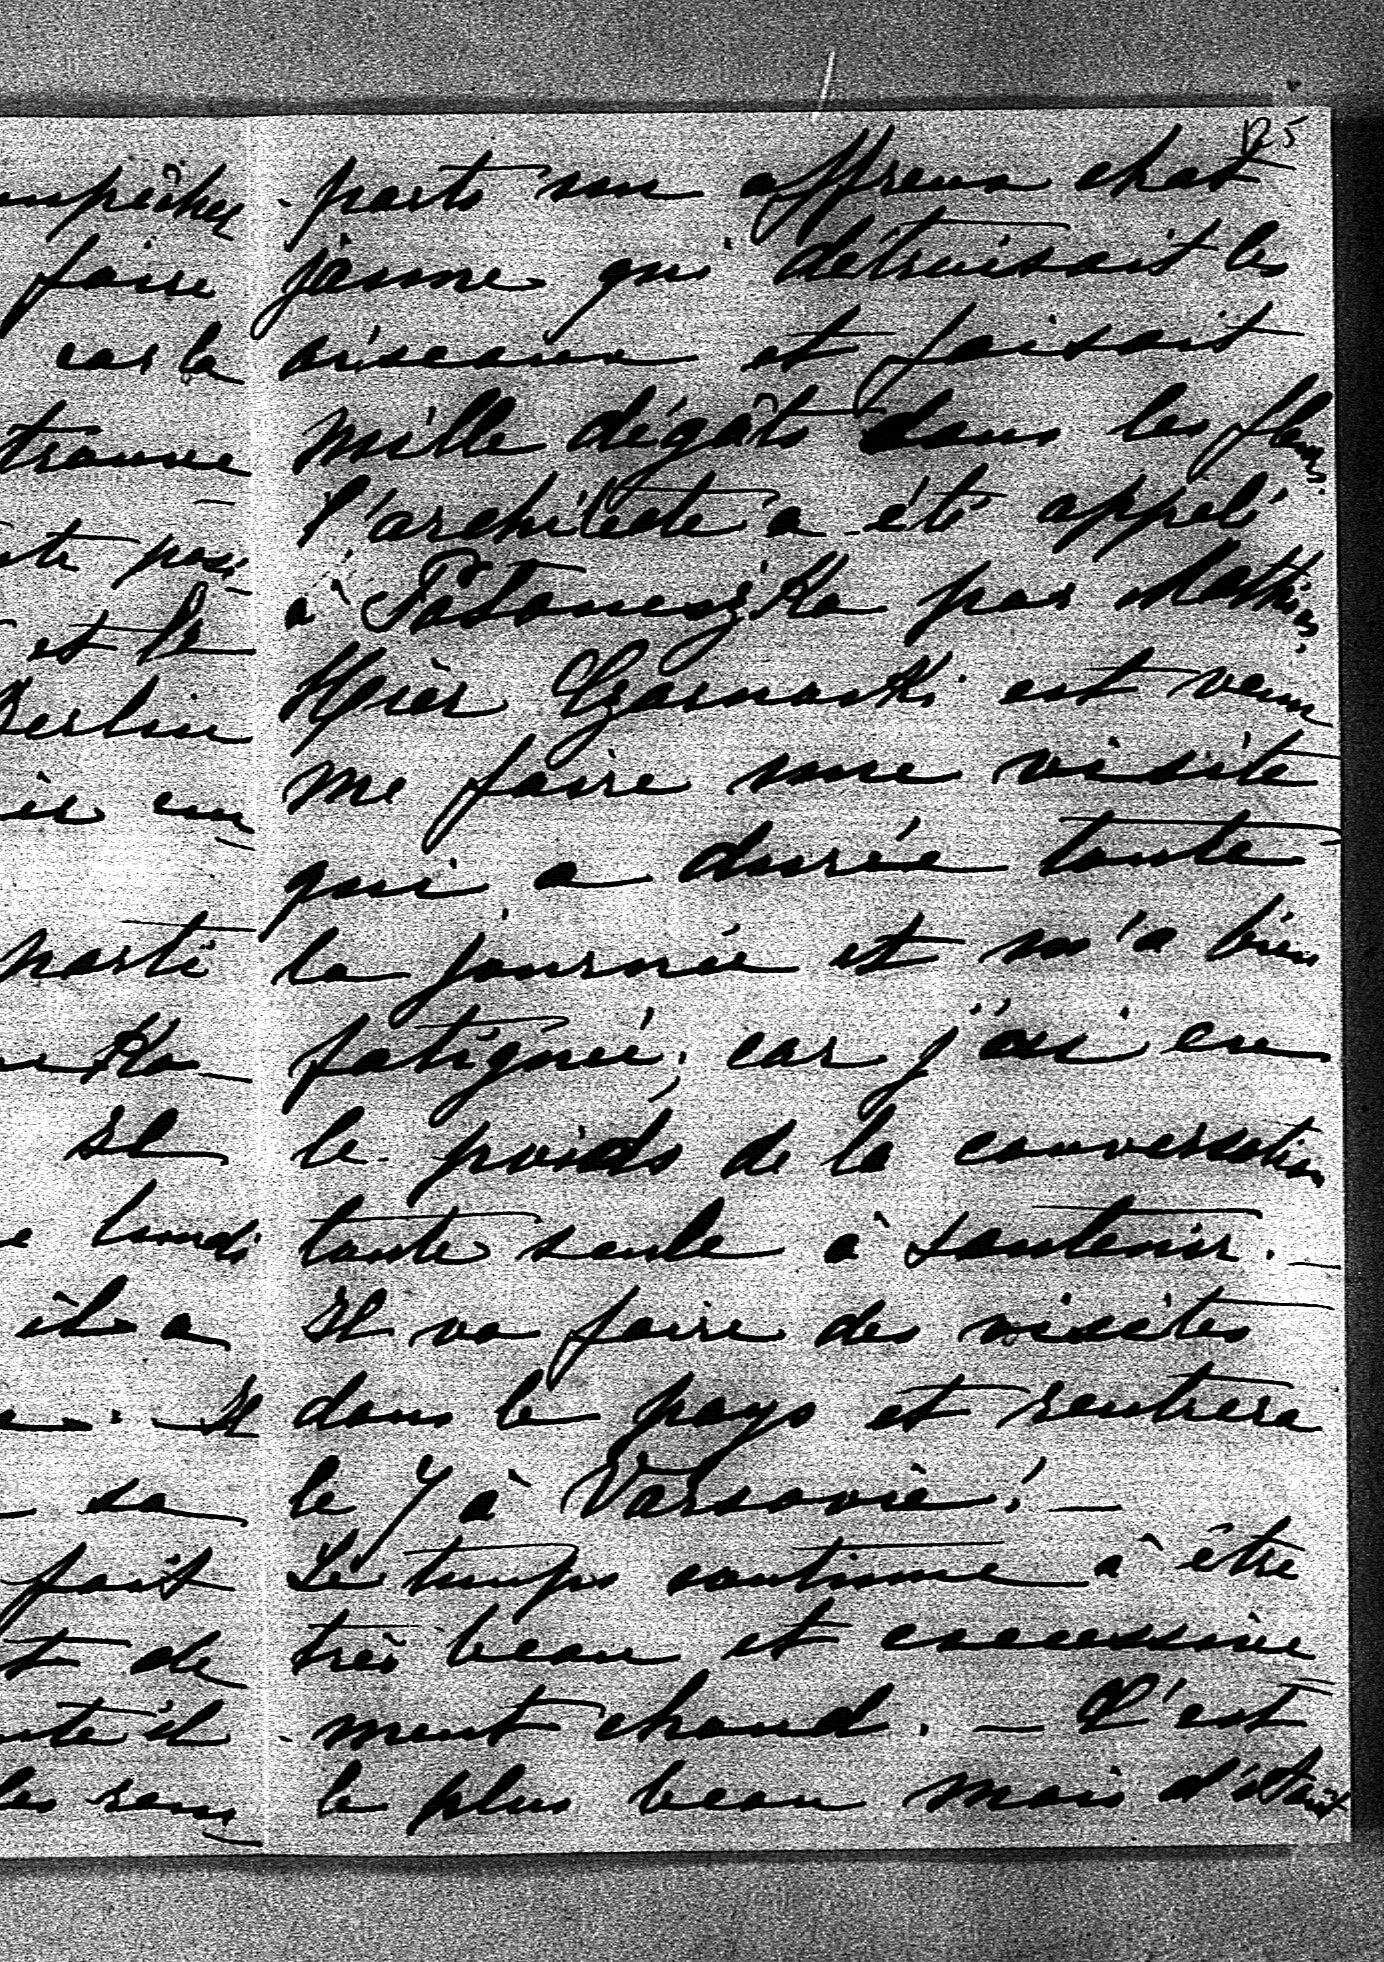 125
- parts un affreux chat
jaune qui détruisait les
oiseaux et faisait
mille dégâts dans les fleurs.
l'architecte a été appelé
à par Mathias.
Hier Czarnowski est venu
me faire une visite
qui a durée toute
la journée et m'a bien
fatiguée; car j'ai eu
le poids de la conversation
toute seule à soutenir. -
Il va faire des visites
dans le pays et rentrera
le 7 à Varsovie! -
Le temps continue à être
très beau et excessive
- ment chaud. - C'est
le plus beau mois d'août
faire
car la
trouve
pas
et le
Berlin
en
parti
Il
lundi
il a
Il
sa
fait
de
il
les